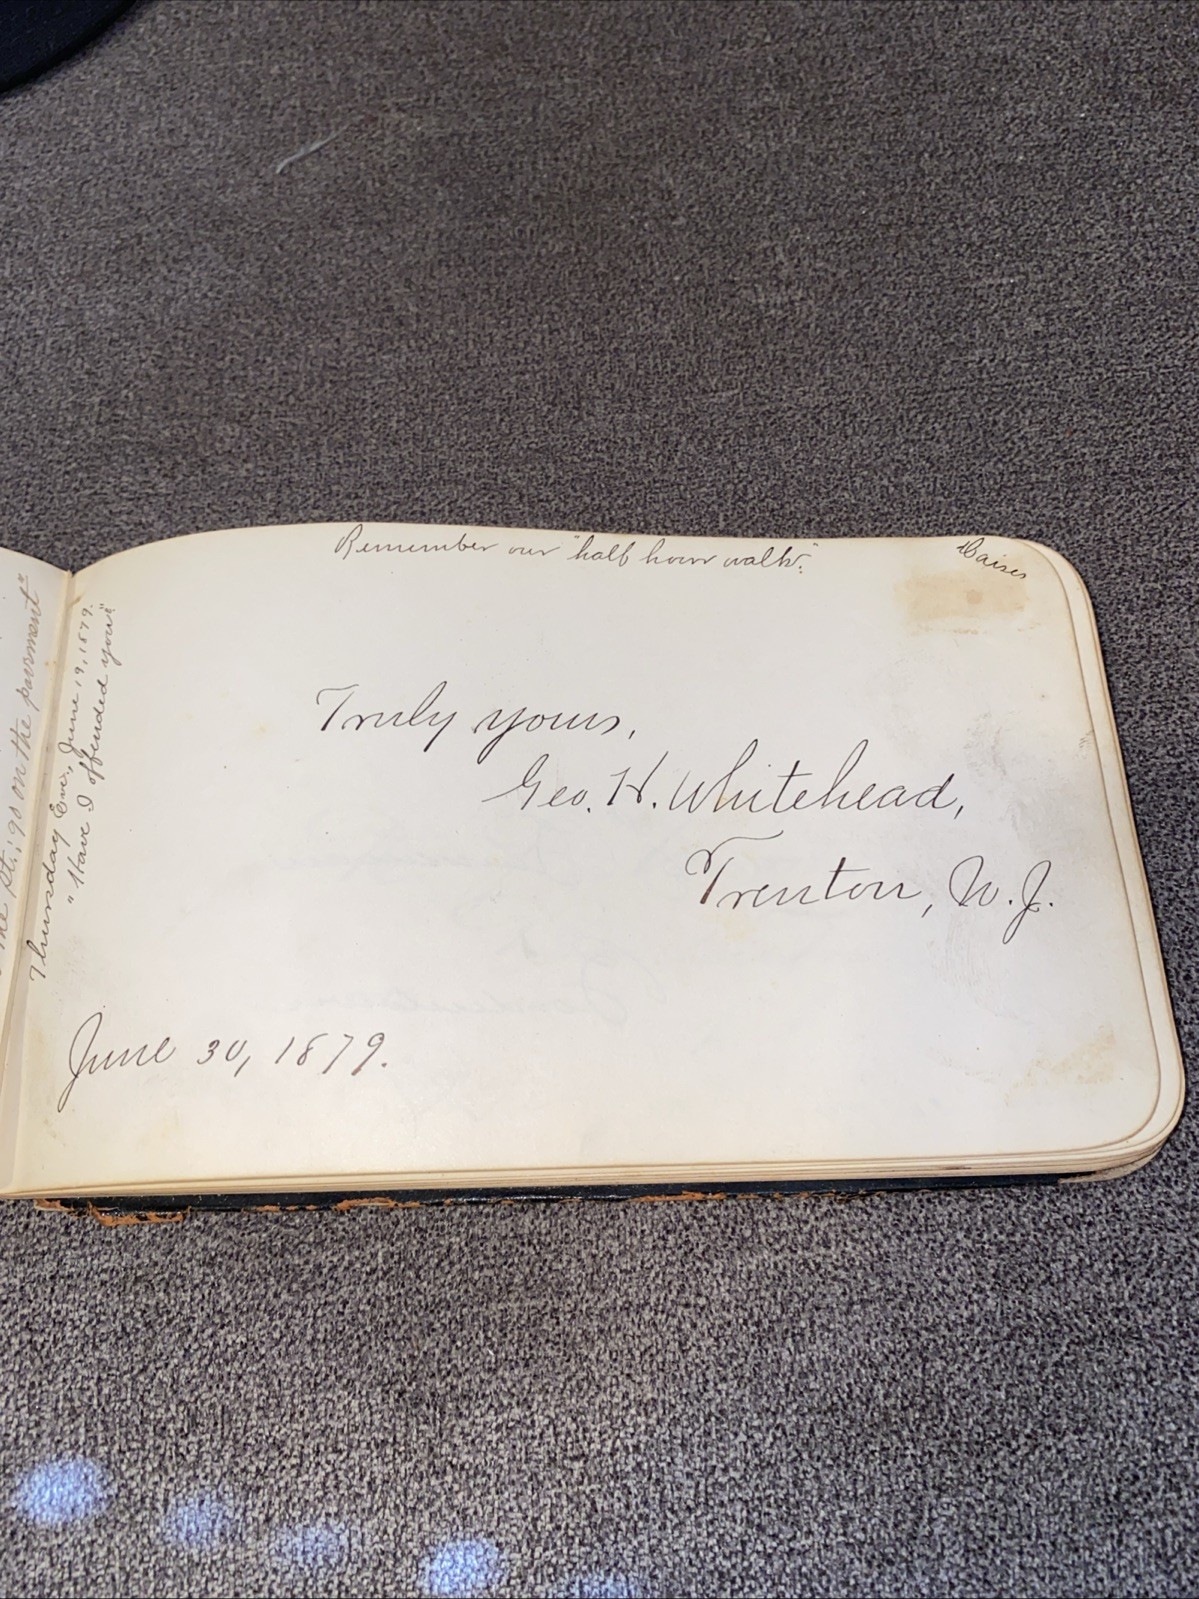 Remember our "half hour walk."
Daises
Thursday Eve., June 19, 1879.
"Have I offended you"
Truly yours,
Geo. H. Whitehead,
Trenton, N.J.
June 30, 1879.
on the pavement"